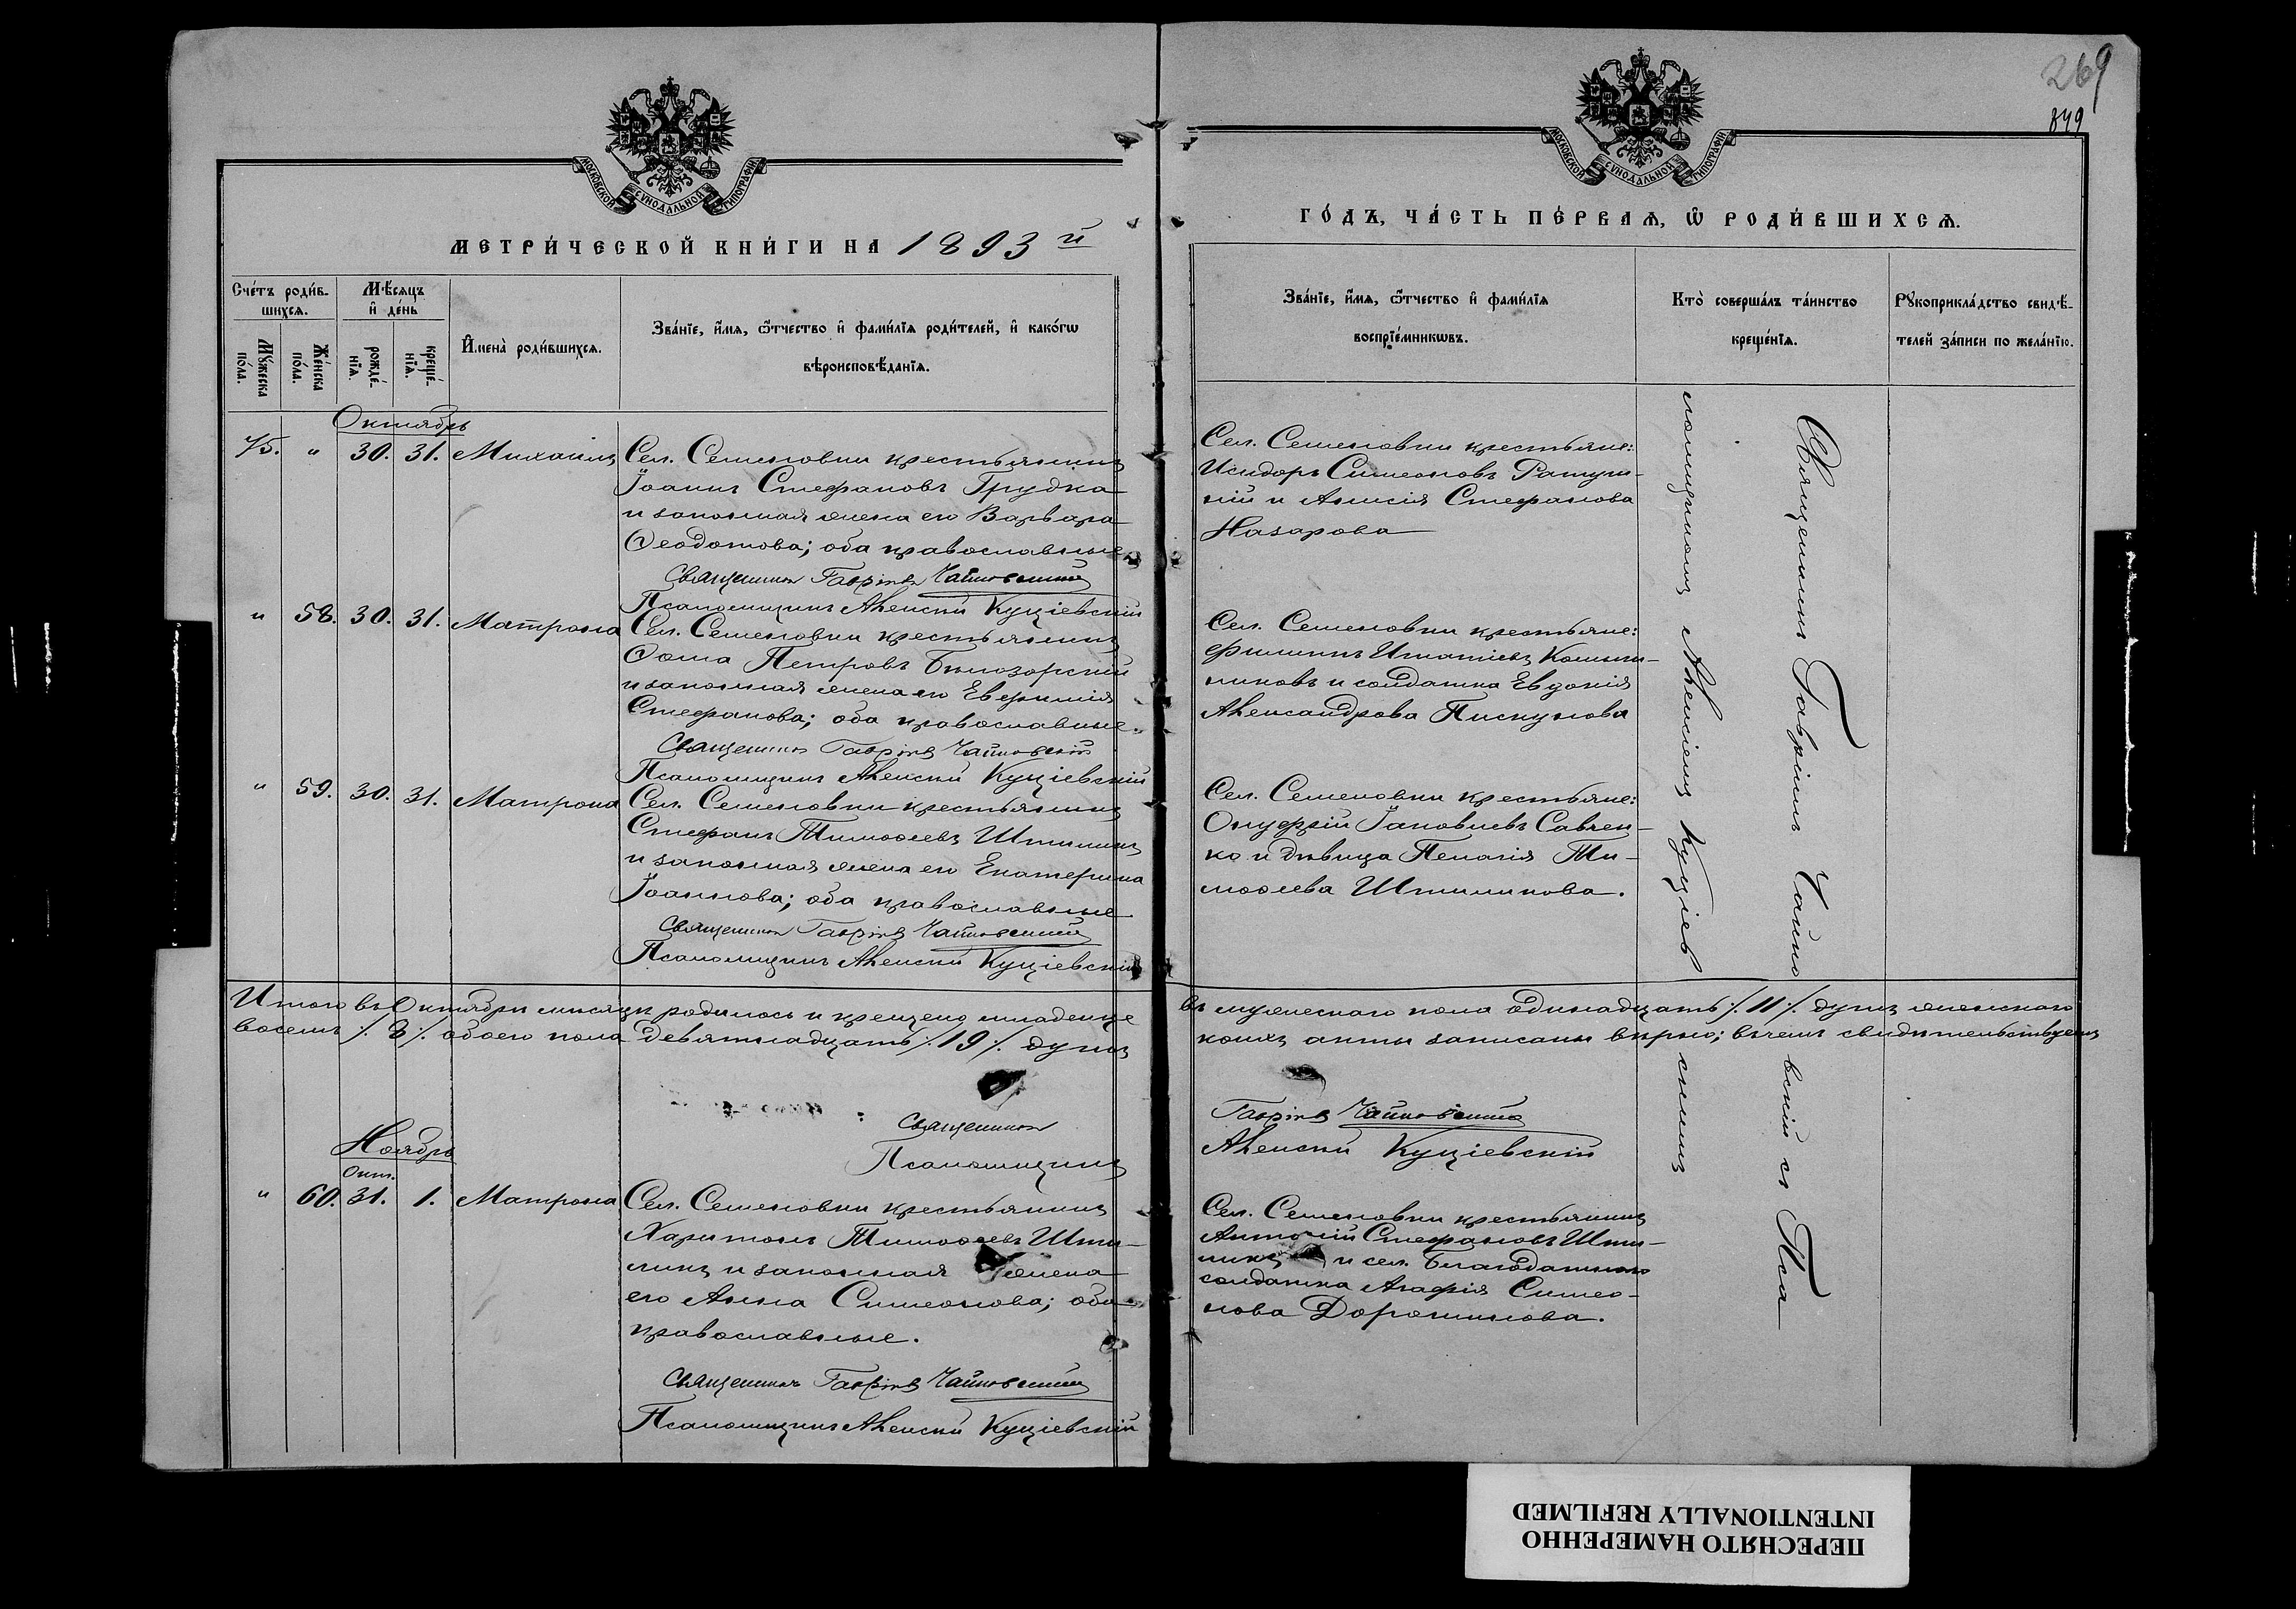 269
849
МОСКОВСКОЙ СѴНОДАЛЬНОЙ ТИПОГРАФІИ
МОСКОВСКОЙ СѴНОДАЛЬНОЙ ТИПОГРАФІИ
МЕТРИ́ЧЕСКОЙ КНИ́ГИ НА 1893й
ГО́ДЪ, ЧА́СТЬ ПЕ́РВАѦ, Ѡ҆ РОДИ́ВШИХСѦ.
Сче́тъ роди́в-
шихсѧ.
Мꙋ́жеска
по́ла.
Же́нска
по́ла.
Мѣ́сѧцъ
и҆ де́нь
рожде́-
нїѧ.
креще́-
нїѧ.
И҆мена̀ роди́вшихсѧ.
Зва́нїе, и҆́мѧ, ѻ҆́тчество и҆ фами́лїѧ роди́телей, и҆ како́гѡ
вѣроисповѣ́данїѧ.
Зва́нїе, и҆́мѧ, ѻ҆́тчество и҆ фами́лїѧ
воспрїе́мникѡвъ.
Кто̀ соверша́лъ та́инство
креще́нїѧ.
Рꙋкоприкла́дство свидѣ́-
телей за́писи по жела́нїю.
Октябрь
75. " 30. 31. Михаилъ
Сел. Семеновки крестьянинъ
Іоаннъ Стефановъ Грудка
и законная жена его Варвара
Ѳеодотова; оба православные
Священникъ Гавріилъ Чайковскій
Псаломщикъ Алексѣй Куціевскій
Сел. Семеновки крестьяне:
Исидоръ Симеоновъ
и Анисія Стефанова
Назарова
" 58. 30. 31. Матрона
Сел. Семеновки крестьянинъ
Ѳома Петровъ Бѣлозорскій
и законная жена его Евфимія
Стефанова; оба православные.
Священникъ Гавріилъ Чайковскій
Псаломщикъ Алексѣй Куціевскій
Сел. Семеновки крестьяне:
Филиппъ Игнатіевъ
и солдатка Евдокія
Александрова Пискунова
" 59. 30. 31. Матрона
Сел. Семеновки крестьянинъ
Стефанъ Тимоѳеевъ
и законная жена его Екатерина
Іоаннова; оба православные
Священникъ Гавріилъ Чайковскій
Псаломщикъ Алексѣй Куціевскій
Сел. Семеновки крестьяне:
Онуфрій Іаковлевъ Савчен-
ко и дѣвица Пелагія Ти-
моѳеева
Священникъ Гавріилъ Чайко
вскій съ Пса
ломщикомъ Алексіемъ Куціев
скимъ
Итого въ Октябрѣ мѣсяцѣ родилось и крещено младенце
въ мужескаго пола одинадцать /.11/. душъ женскаго
восемь /.8/. обоего пола девятнадцать /.19/. душъ
коихъ акты записаны вѣрно; въ чемъ свидѣтельствуемъ
Священникъ
Гавріилъ Чайковскій
Псаломщикъ
Алексѣй Куціевскій
Ноябрь
Окт.
" 60. 31. 1. Матрона
Сел. Семеновки крестьянинъ
Харитонъ Тимоѳеевъ
и законная жена
его Анна Симеонова; оба
православные.
Священникъ Гавріилъ Чайковскій
Псаломщикъ Алексѣй Куціевскій
Сел. Семеновки крестьянинъ
Антоній Стефановъ
и сел. Благодатнаго
солдатка Агафія Симео-
нова
ПЕРЕСНЯТО НАМЕРЕННО
INTENTIONALLY REFILMED